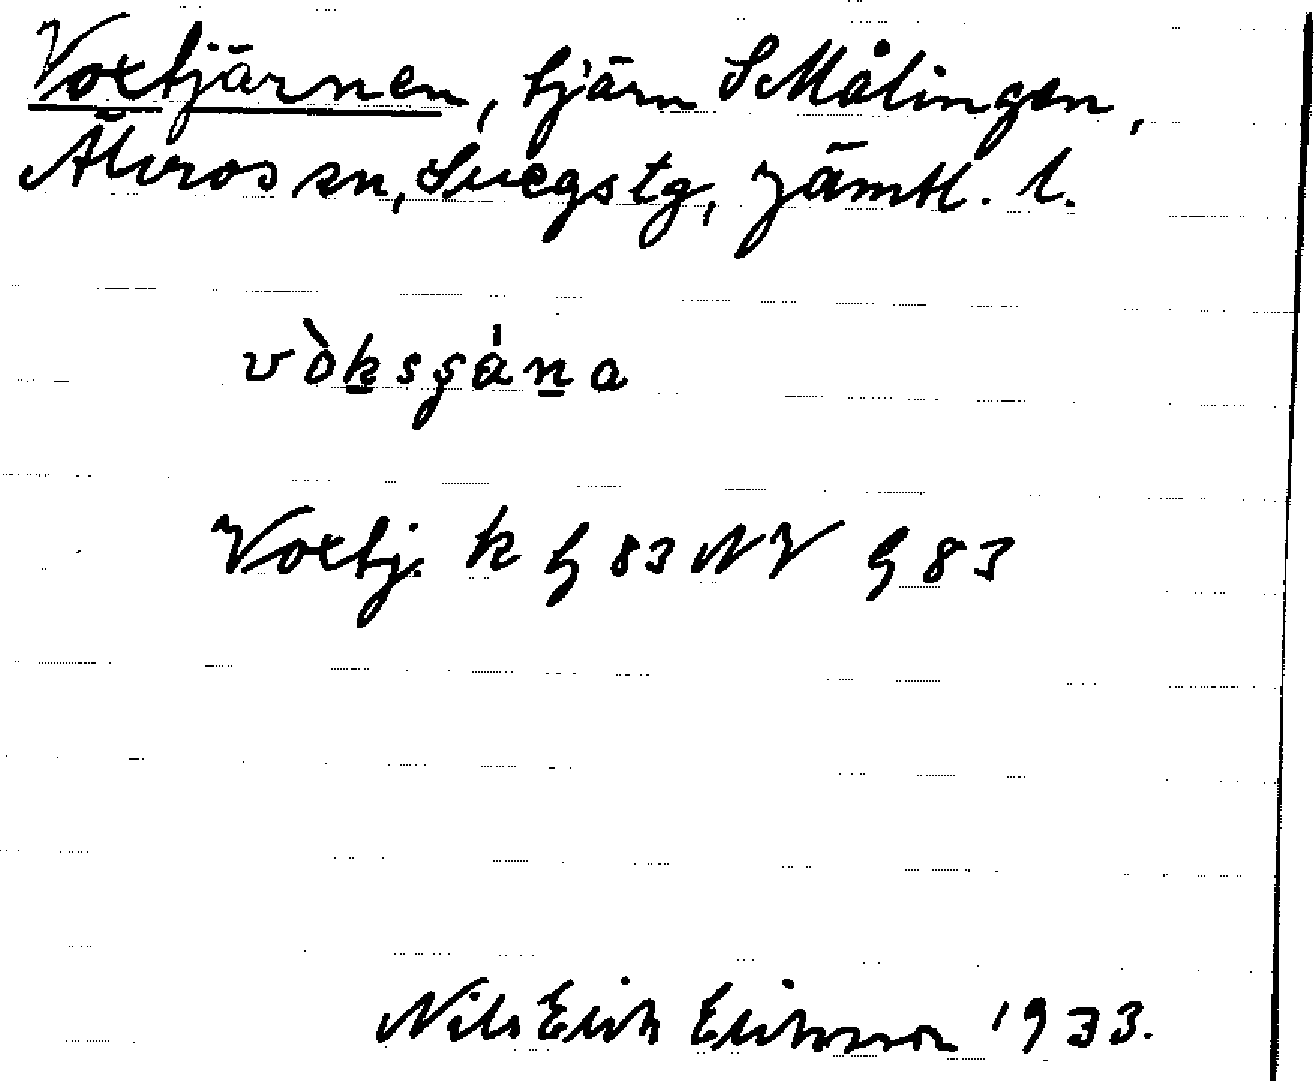 Voxtjärnen, tjärn S Målingen,
Älvros sn, Svegs tg, Jämtl. l.
vòksʂána
Voxtj. k G 83 NV G 83
Nils Erik Eriksson 1933.